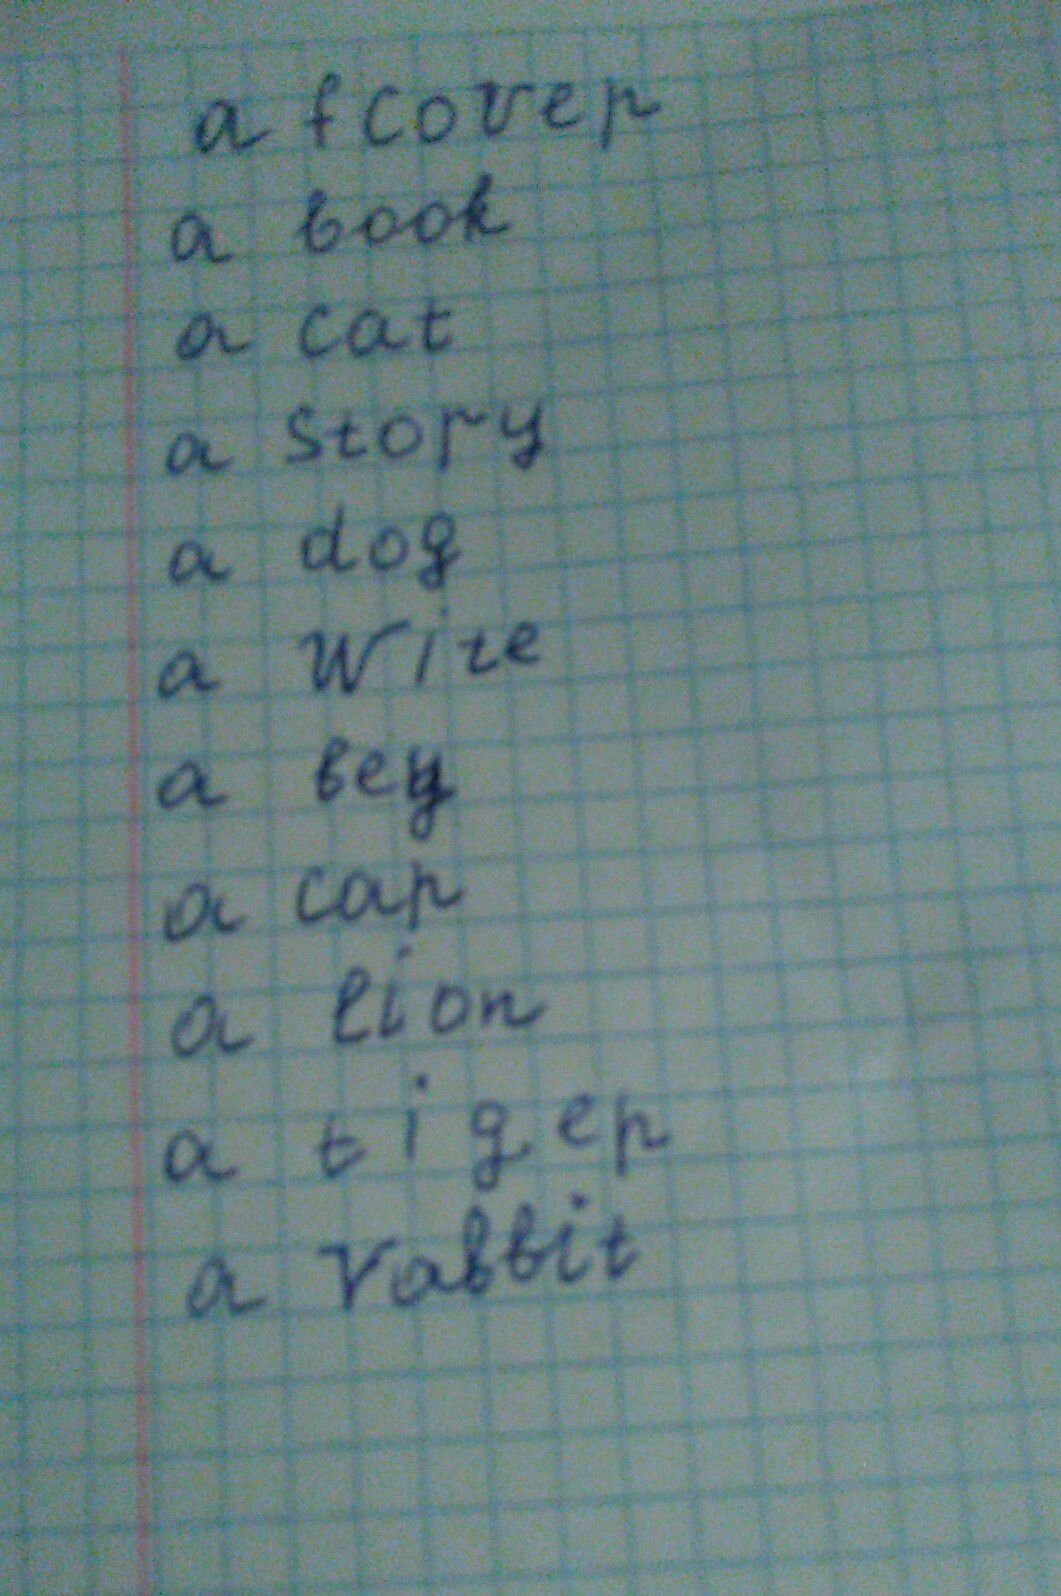 a fcovep
a book
a cat
a story
a dog
a wize
a bey
a cap
a lion
a tigep
a rabbit